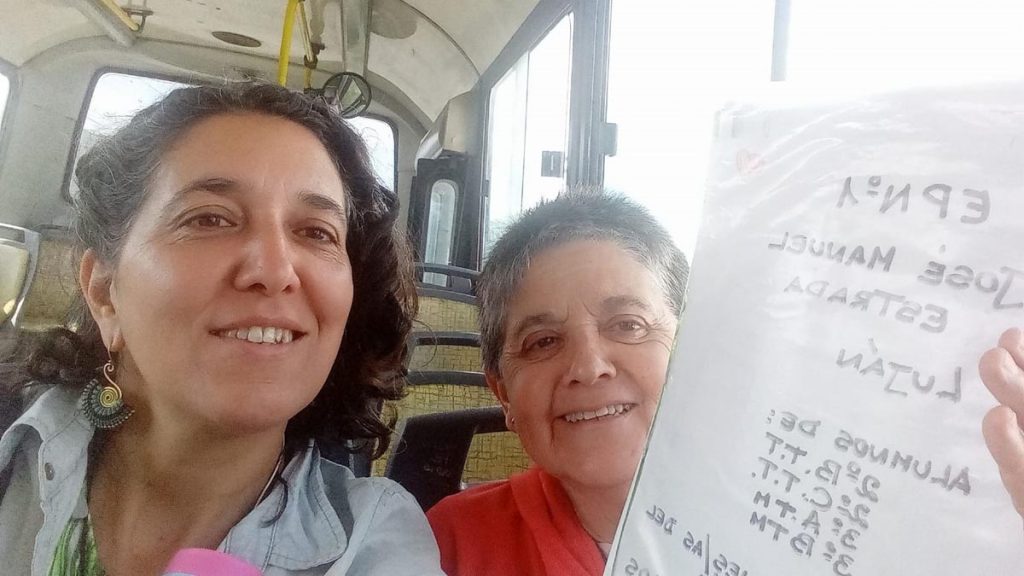 EP Nº1
JOSÉ MANUEL
ESTRADA
LUJÁN
ALUMNOS DE:
2º B.T.T
2º C.T.T.
3º A.TM
3º B TM
DEL